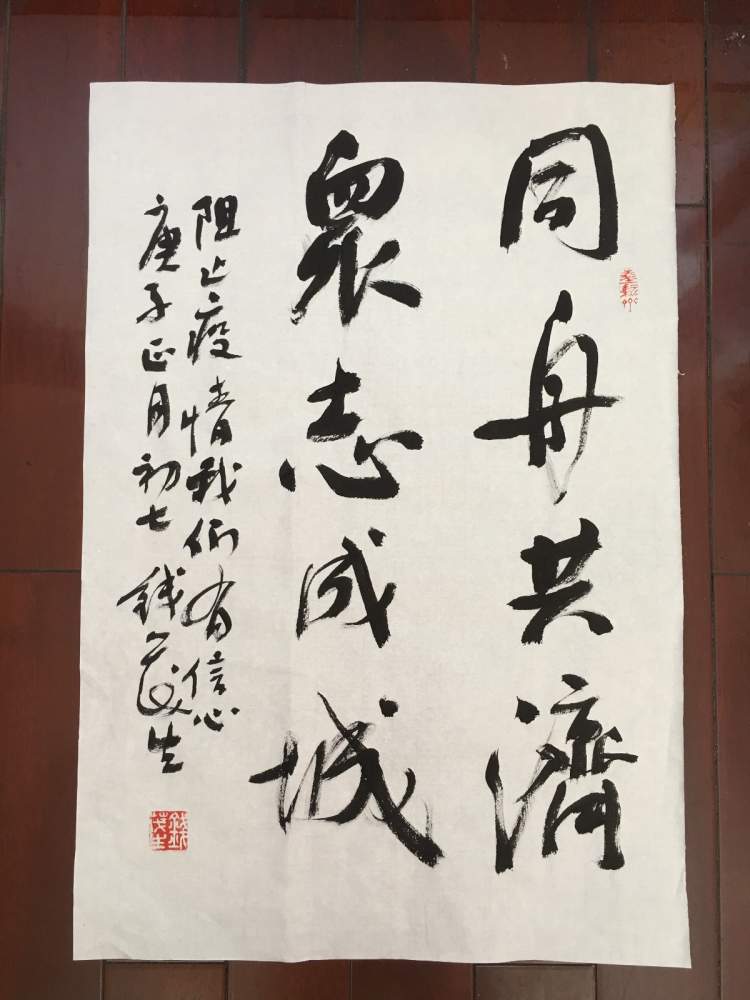 同舟共濟
眾志成城
阻止疫情我们有信心
庚子正月初七 钱茂生